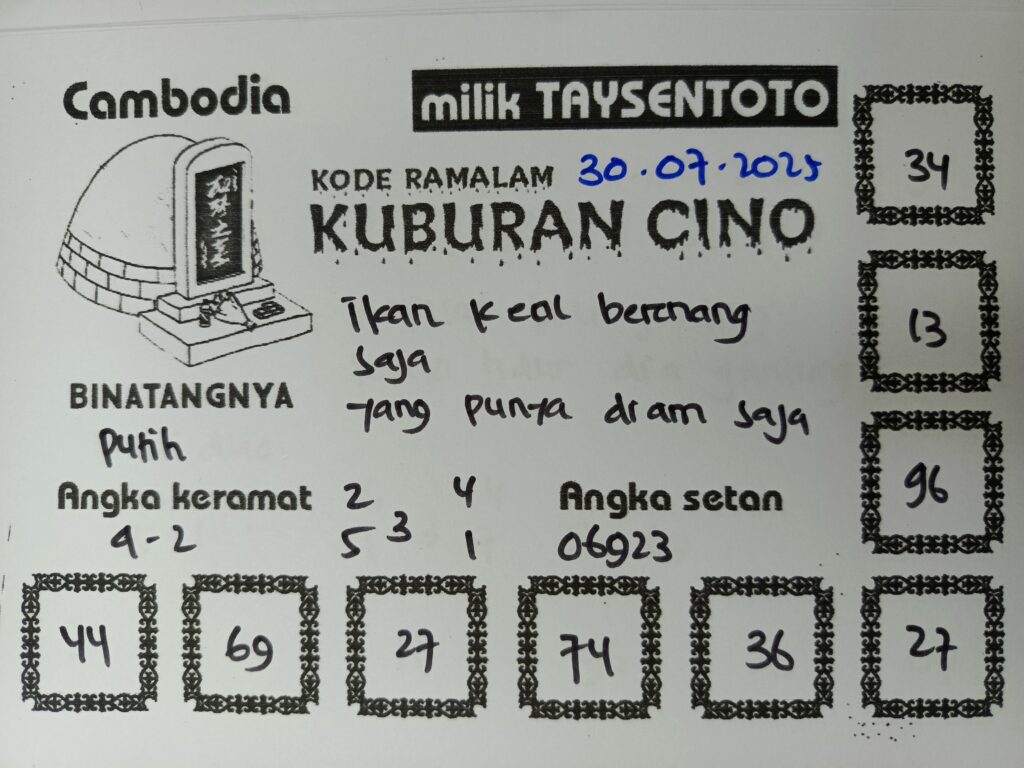 Cambodia
milik TAYSENTOTO
KODE RAMALAM 30.07.2025
KUBURAN CINO
ikan kecil berenang
saja
yang punya dram saja
BINATANGNYA
Putih
Angka keramat
4-2
2 4
3
5 1
Angka setan
06923
34
13
96
44 69 27 74 36 27